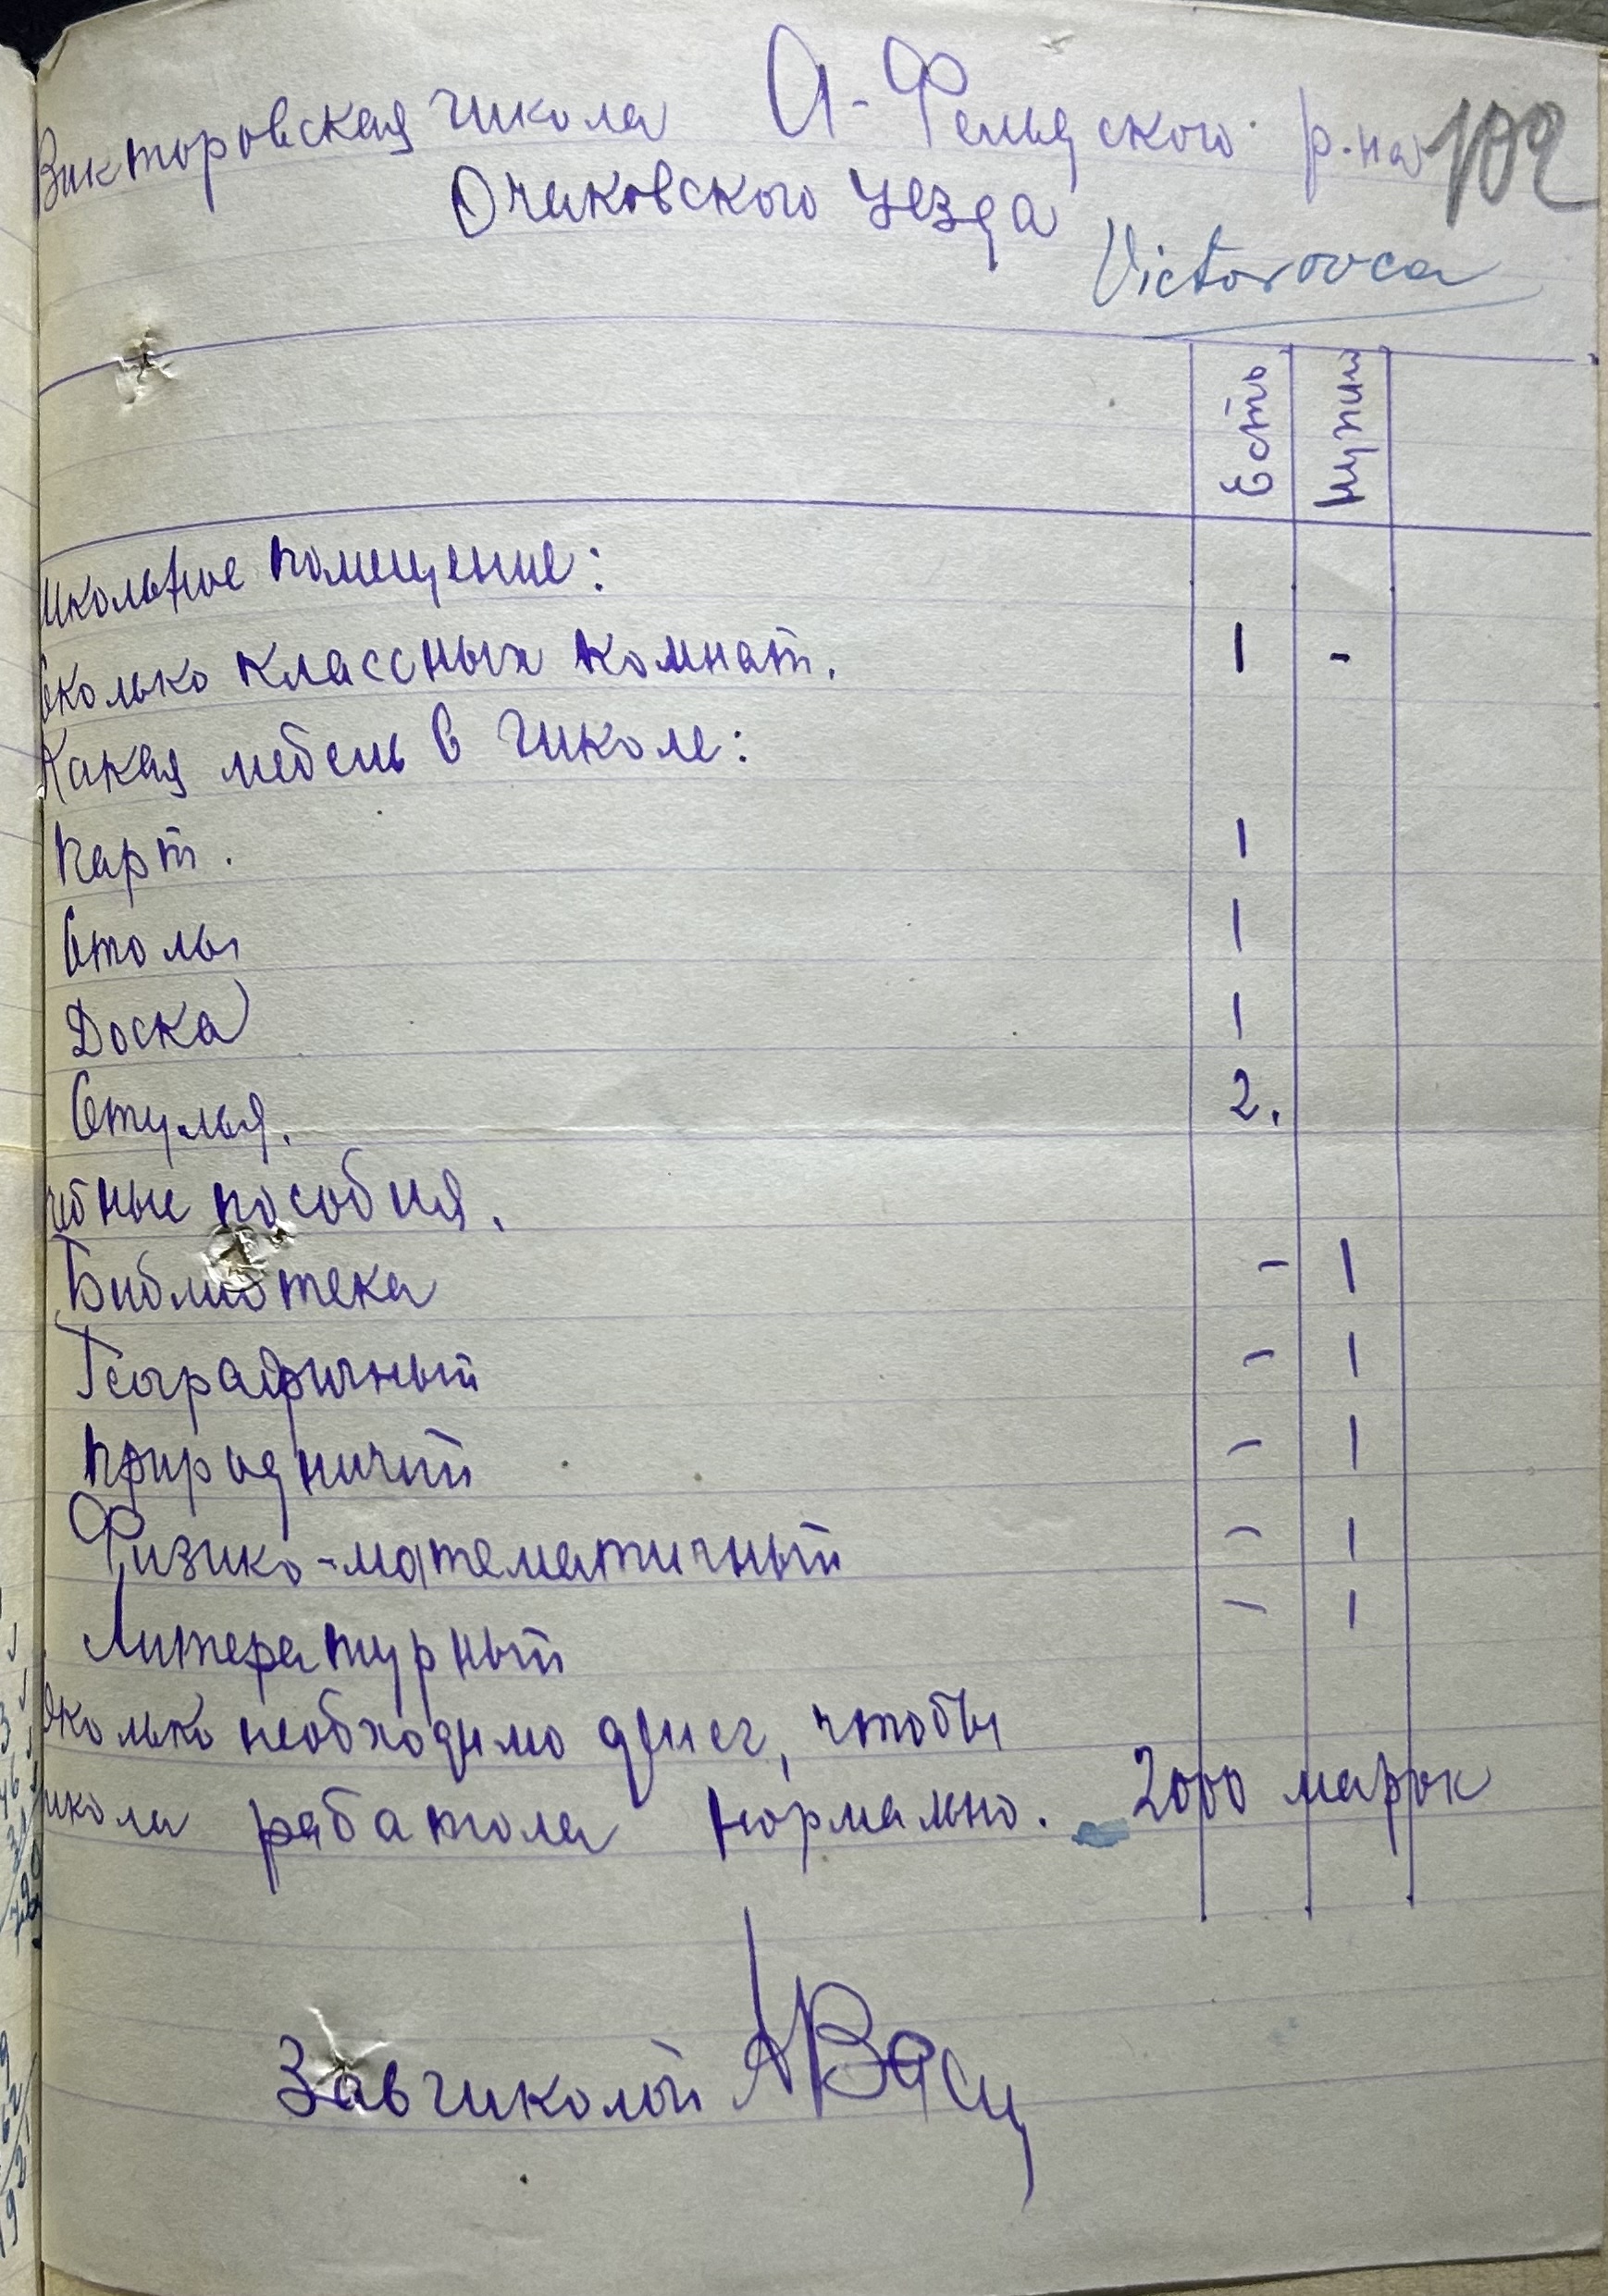 Викторовская школа А-Фельдского р-на 102
Очаковского уезда
Victorovca
Есть Нужн
Школьное помещение:
Сколько классных комнат. 1 -
Какая мебель в школе:
Парт. 1
Столы 1
Доска 1
Стулья. 2.
чебные пособия.
Библиотека - 1
Географичный - 1
Природничий - 1
Физико-математичный - 1
Литературный - 1
Сколько необходимо денег, чтобы
школа работала нормально. 2000 марок
Завшколой